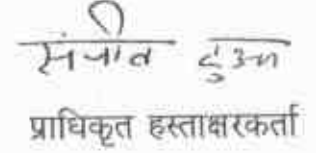 संजीव दुआ
प्राधिकृत हस्ताक्षरकर्ता